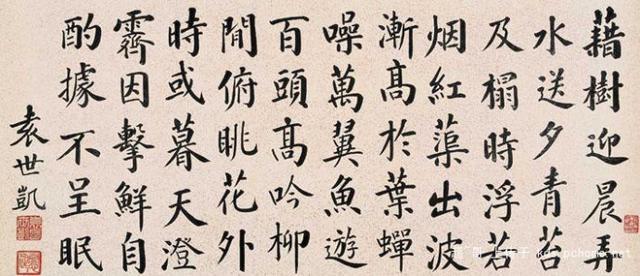 藉樹迎晨弄
水送夕青苔
及榻時浮若
烟紅蕖出波
漸高於葉蟬
噪萬翼魚遊
百頭高吟柳
閒俯眺花外
時或暮天澄
霽因擊鮮自
酌據不呈眠
袁世凱